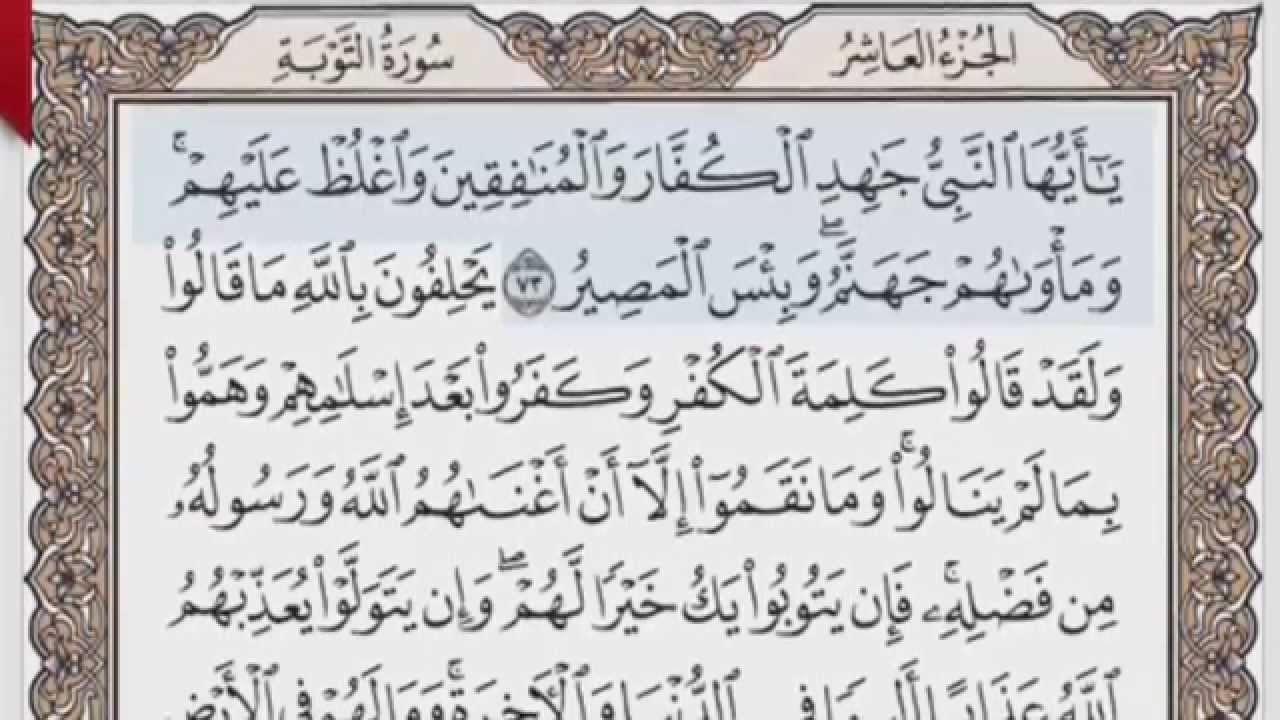 الجُزْءُ العَاشِرُ
سُورَةُ التَّوْبَةِ
يَـٰٓأَيُّهَا ٱلنَّبِىُّ جَـٰهِدِ ٱلْكُفَّارَ وَٱلْمُنَـٰفِقِينَ وَٱغْلُظْ عَلَيْهِمْ ۚ
وَمَأْوَىٰهُمْ جَهَنَّمُ ۖ وَبِئْسَ ٱلْمَصِيرُ ٧٣ يَحْلِفُونَ بِٱللَّهِ مَا قَالُوا۟
وَلَقَدْ قَالُوا۟ كَلِمَةَ ٱلْكُفْرِ وَكَفَرُوا۟ بَعْدَ إِسْلَـٰمِهِمْ وَهَمُّوا۟
بِمَا لَمْ يَنَالُوا۟ ۚ وَمَا نَقَمُوٓا۟ إِلَّآ أَنْ أَغْنَىٰهُمُ ٱللَّهُ وَرَسُولُهُۥ
مِن فَضْلِهِۦ ۚ فَإِن يَتُوبُوا۟ يَكُ خَيْرًا لَّهُمْ ۖ وَإِن يَتَوَلَّوْا۟ يُعَذِّبْهُمُ
ٱللَّهُ عَذَابًا أَلِيمًا فِى ٱلدُّنْيَا وَٱلْـَٔاخِرَةِ ۚ وَمَا لَهُمْ فِى ٱلْأَرْضِ